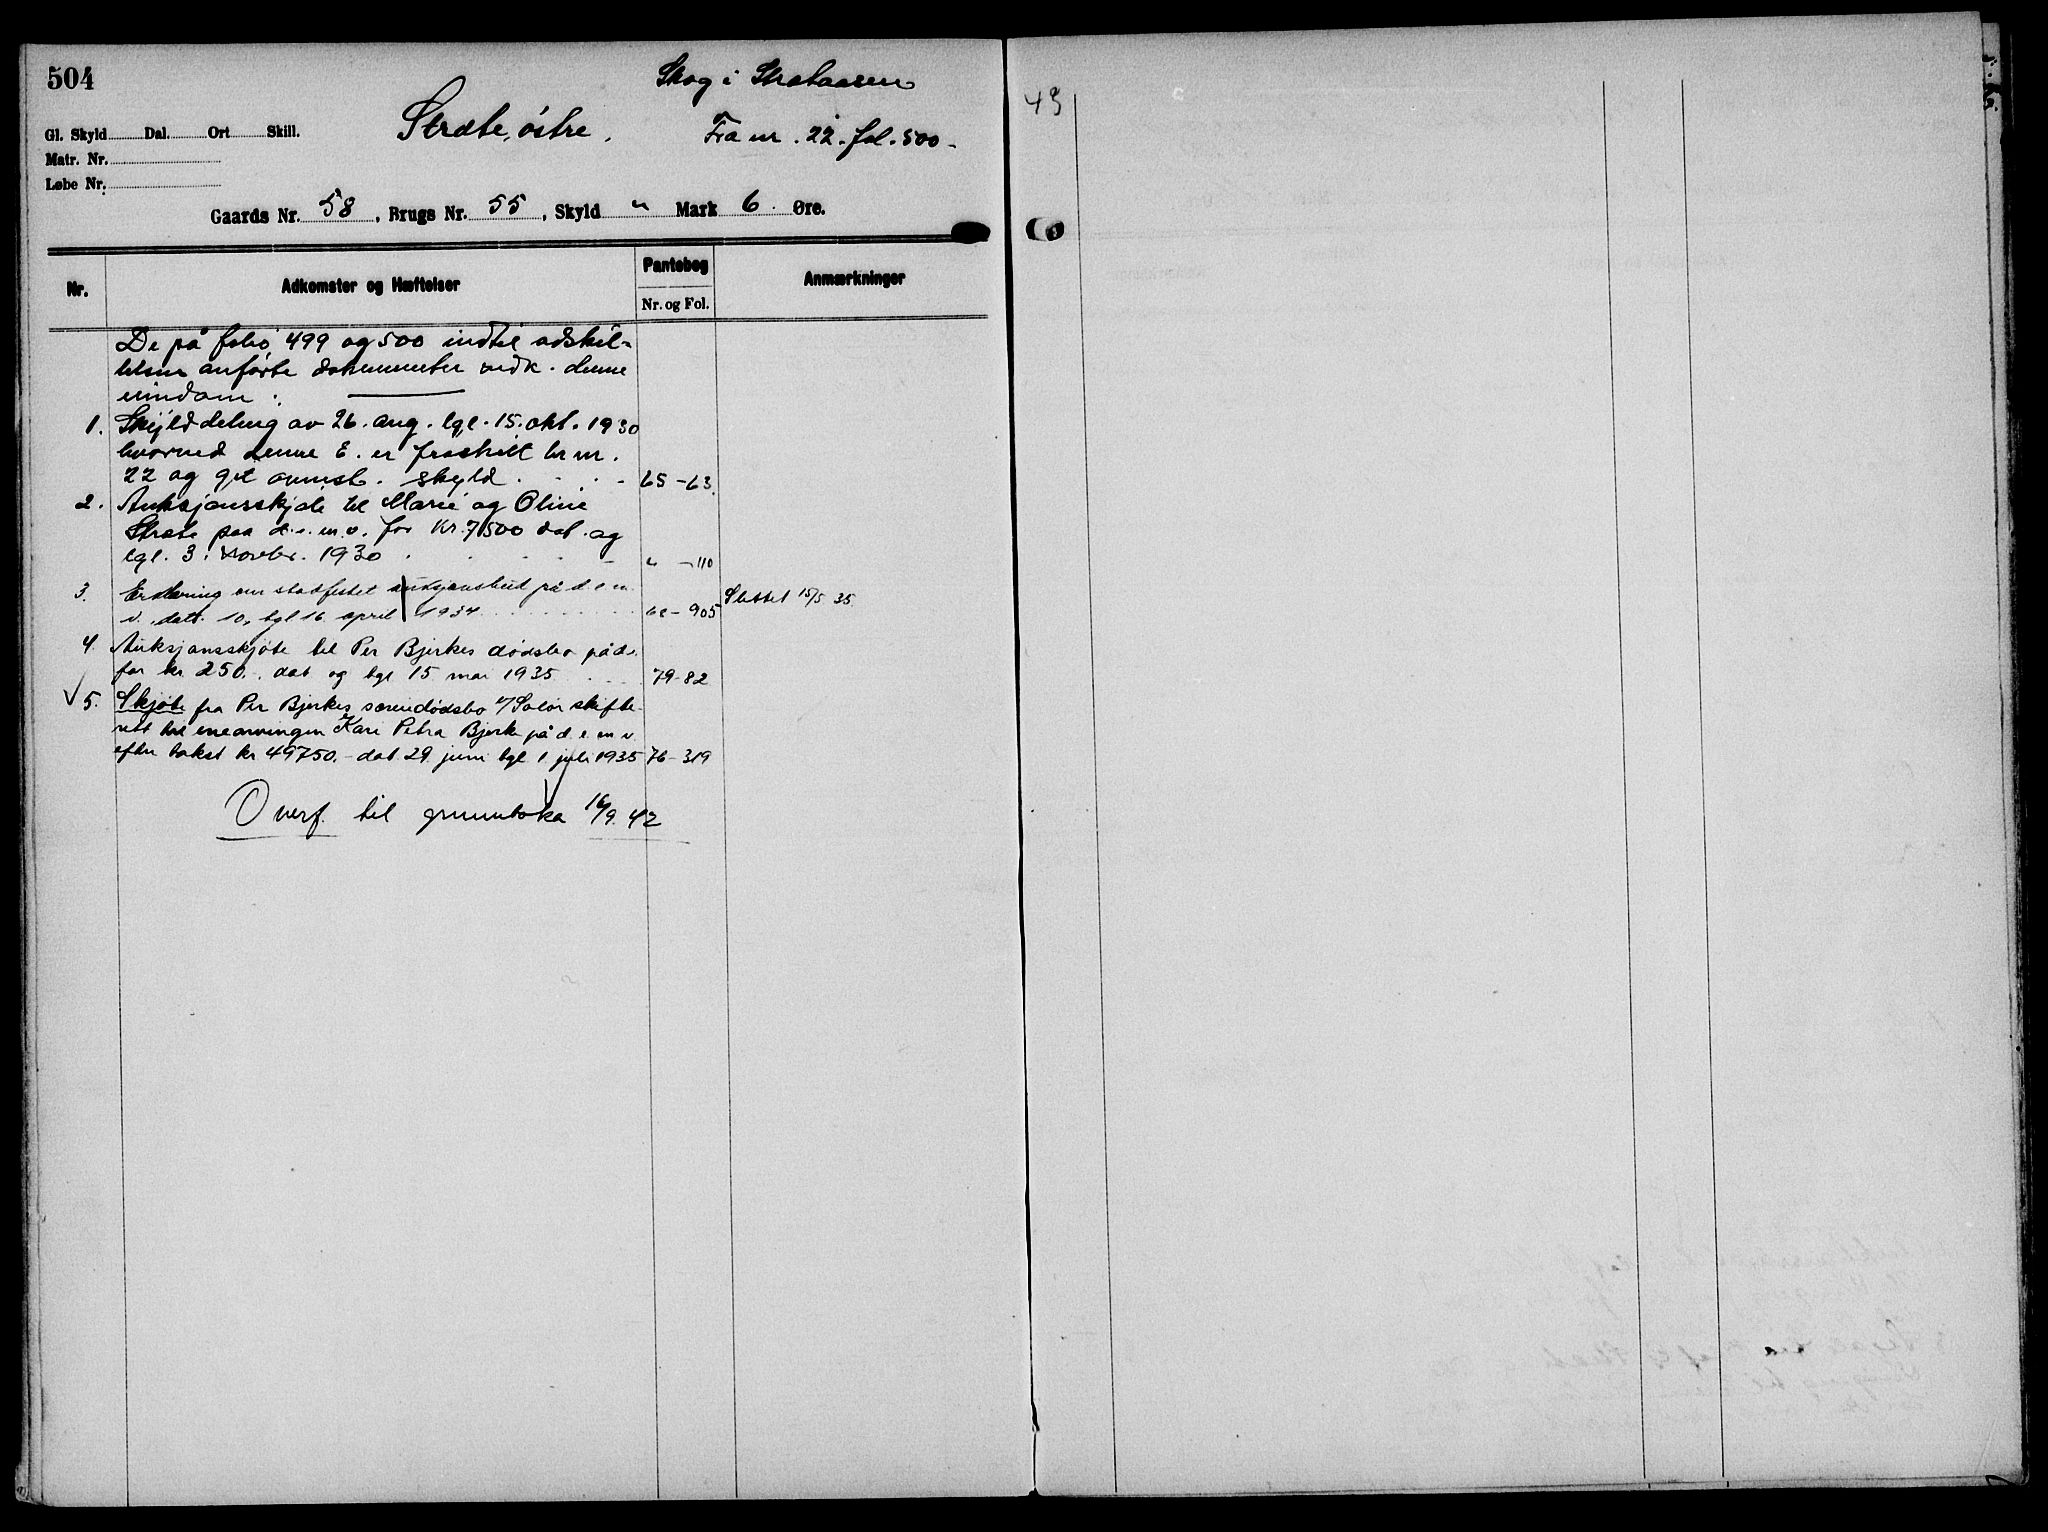 504
Skog i Strætaasen
Stræte, østre.
Fra nr. 22. fol. 500 -
Gl. Skyld Dal. Ort Skill.
Matr. Nr.
Løbe Nr.
Gaards Nr. 58, Brugs Nr. 55, Skyld " Mark 6 Øre.
Nr. Adkomster og Hæftelser Pantebog Anmærkninger
Nr. og Fol.
De på folio 499 og 500 indtil adskil-
lelsen anførte dokumenter vedk. denne
eiendom:
1. Skylddeling av 26. aug. tgl. 15. okt. 1930
hvorved denne E. er fraskilt br. nr.
22 og git ovnnst. skyld. 65 - 63.
2. Auksjonsskjøte til Marie og Oline
Stræte paa d. e. m. v. for Kr. 7500 dat. og
tgl. 3. novbr. 1930 " - 110
3. Erklæring om stadfestet auksjonsbud på d. e. m.
v., dat. 10, tgl 16. april 1934 68 - 905 Slettet 15/5 35.
4. Auksjonsskjøte til Per Bjerkes dødsbo på d.
for kr 250.-. dat og tgl 15 mai 1935 79 - 82
5. Skjøte fra Per Bjerkes særeiedødsbo v/ Solør skifte-
rett til enearvingen Kari Petra Bjerke på d. e. m v.
efter takst kr 49750.- dat. 29. juni tgl 1. juli 1935 76 - 319
Overf. til grunnboka 16/9. 42
49